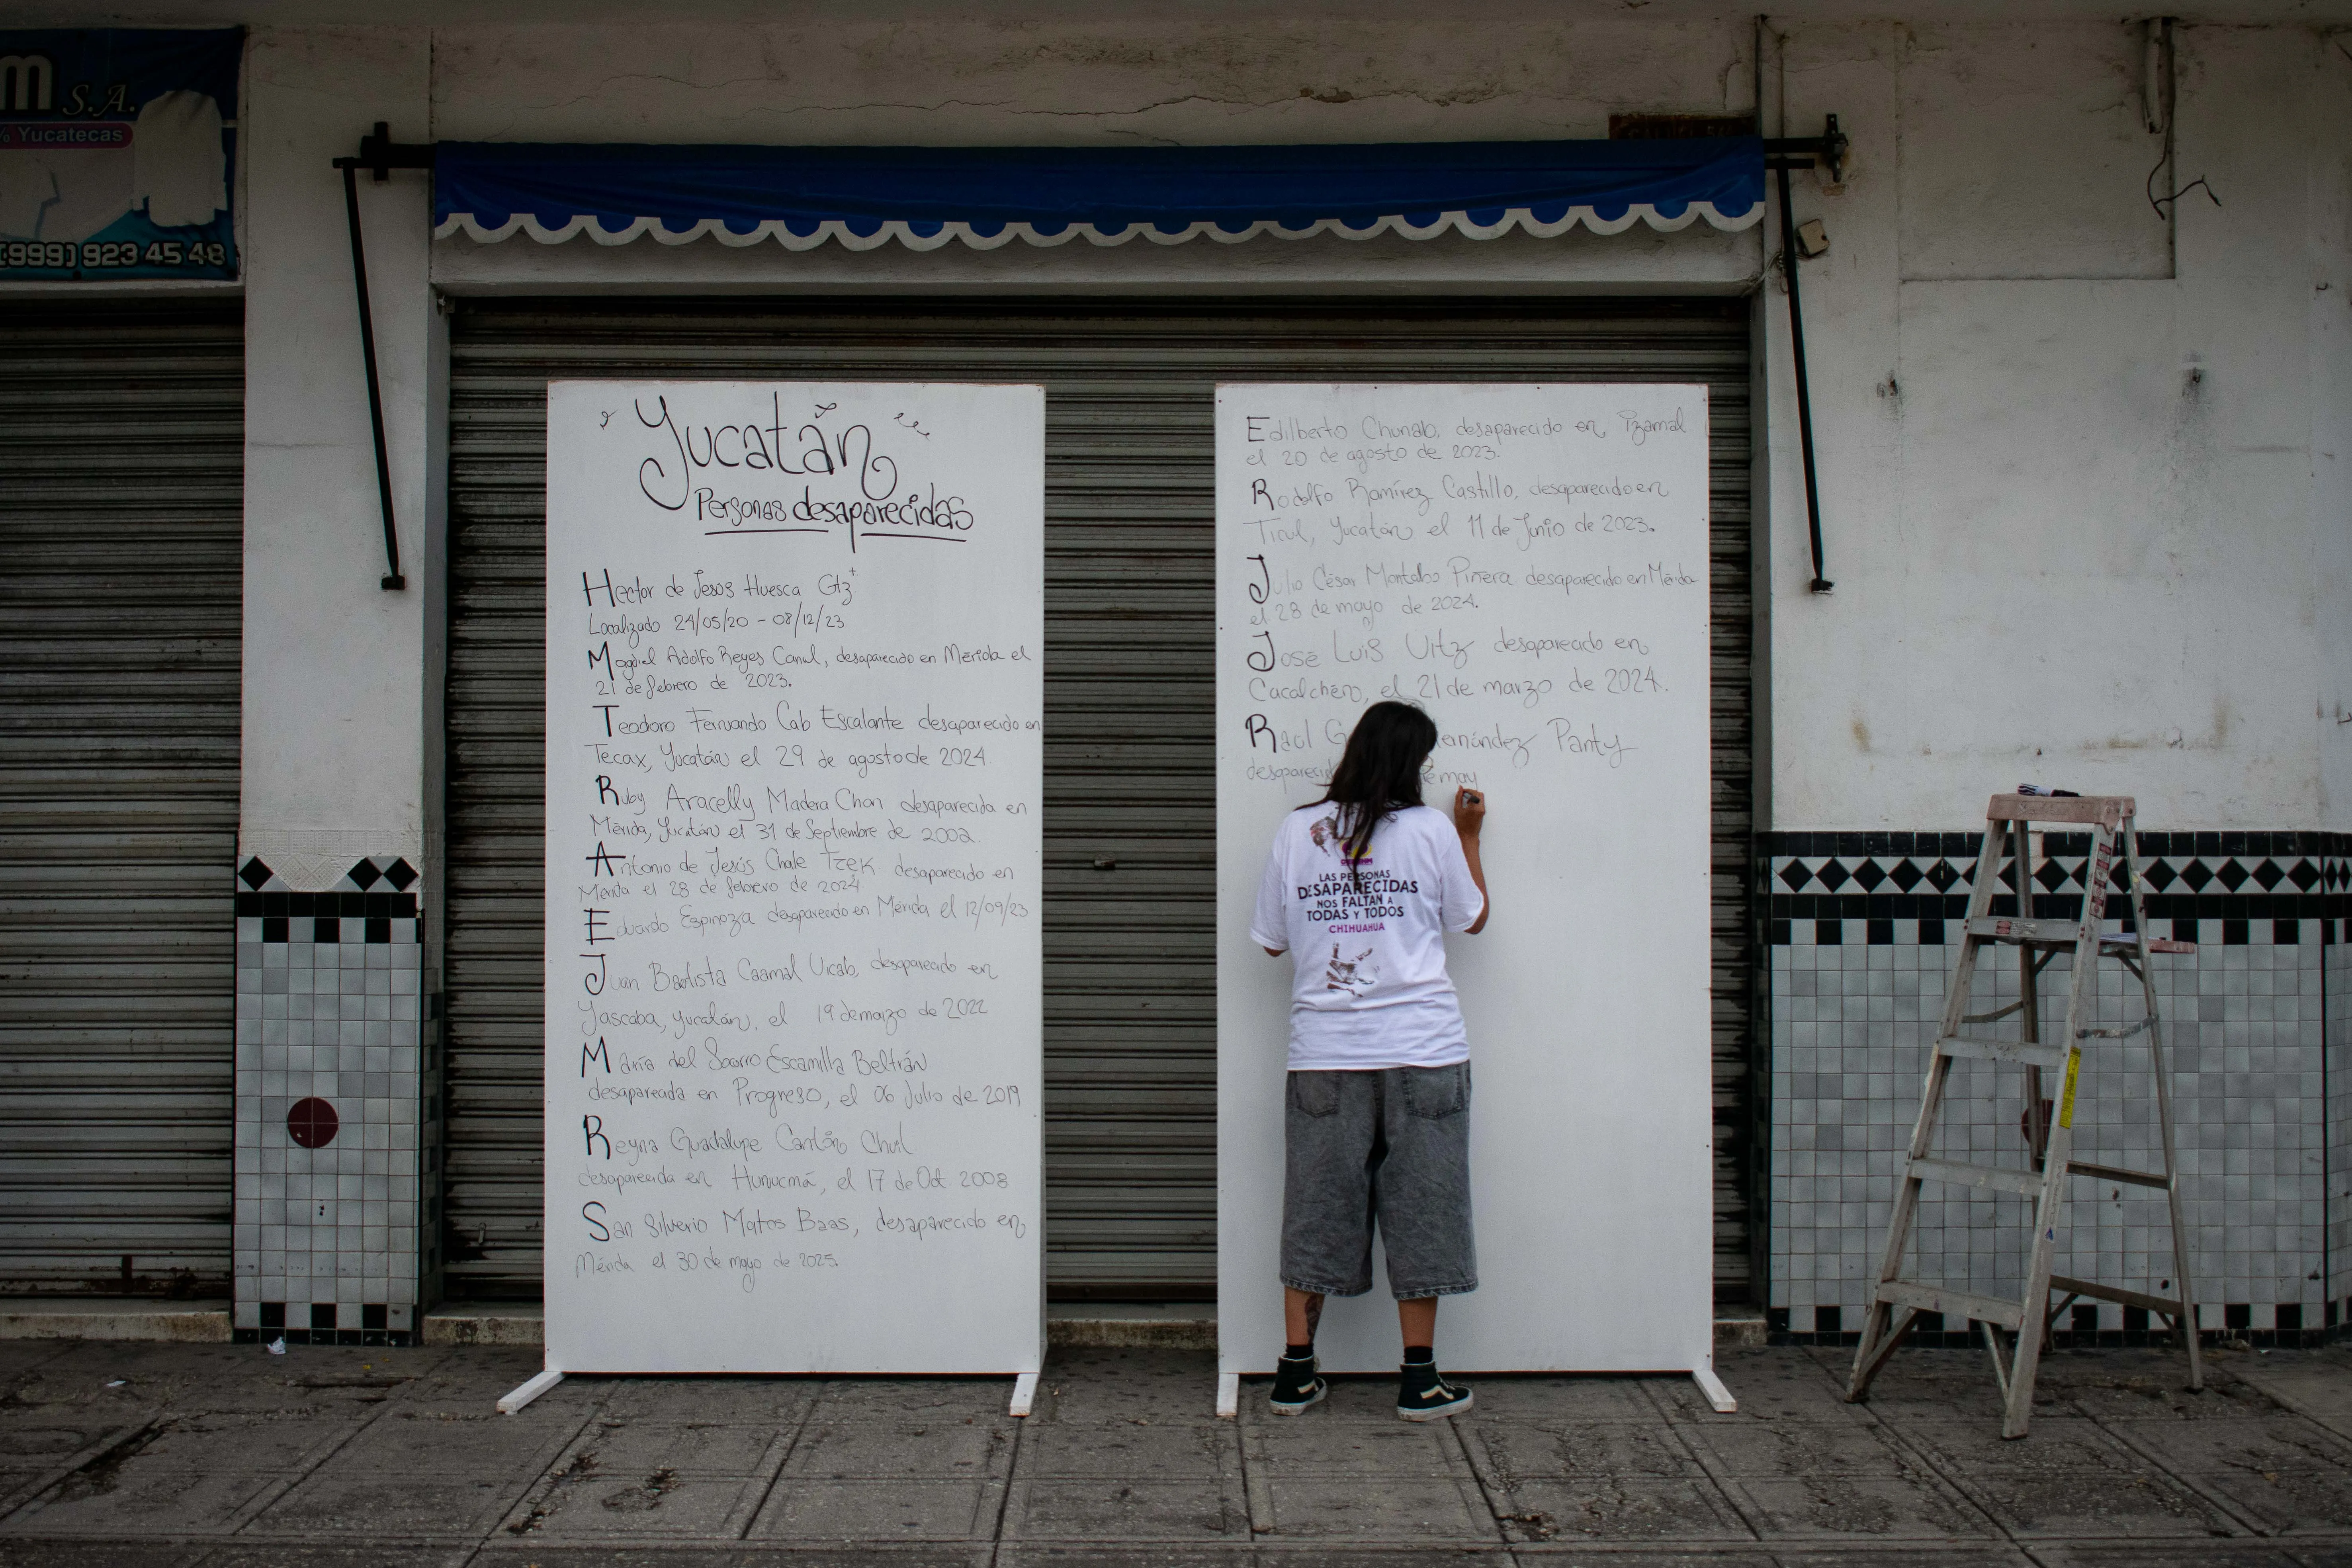 m S.A.
% Yucatecas
(999) 923 45 48
Yucatán
Personas desaparecidas
Hector de Jesús Huesca Gtz
Localizado 24/05/20 - 08/12/23
Adolfo Reyes Canul, desaparecido en Mérida el
21 de febrero de 2023.
Teodoro Fernando Cab Escalante desaparecido en
Tecax, Yucatán el 29 de agosto de 2024.
Ruby Aracelly Madera Chan desaparecida en
Mérida, Yucatán el 31 de Septiembre de 2002.
Antonio de Jesús Chale Tzek desaparecido en
Mérida el 28 de febrero de 2024
Eduardo Espinoza desaparecido en Mérida el 12/09/23
Juan Bautista Caamal Uicab, desaparecido en
Yascaba, Yucatán, el 19 de marzo de 2022
María del Socorro Escamilla Beltrán
desaparecida en Progreso, el 06 Julio de 2019
Reyna Guadalupe Cantón Chul
desaparecida en Hunucmá, el 17 de Oct 2008
San Silverio Matos Baas, desaparecido en
Mérida el 30 de mayo de 2025.
Edilberto Chunab, desaparecido en Izamal
el 20 de agosto de 2023.
Rodolfo Ramírez Castillo, desaparecido en
Ticul, Yucatán el 11 de Junio de 2023.
Julio César Montalbo Piñera desaparecido en Mérida
el 28 de mayo de 2024.
José Luis Uitz desaparecido en
Cacalchén, el 21 de marzo de 2024.
Raúl G ernández Panty
desaparecid de may
LAS PERSONAS
DESAPARECIDAS
NOS FALTAN A
TODAS Y TODOS
CHIHUAHUA